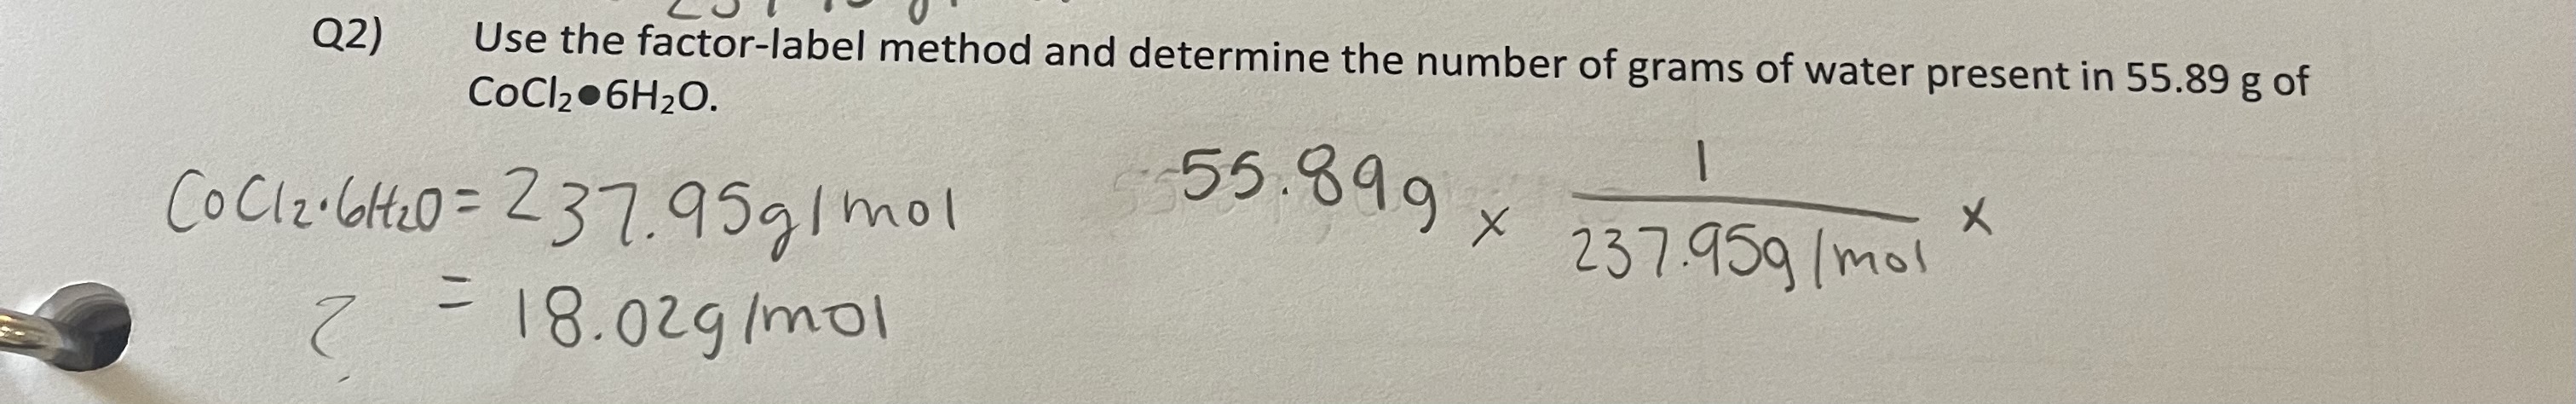 Q2) Use the factor-label method and determine the number of grams of water present in 55.89 g of
CoCl₂●6H₂O.
CoCl₂·6H₂O = 237.95g/mol
? = 18.02g/mol
55.89g x 1 x
237.95g/mol